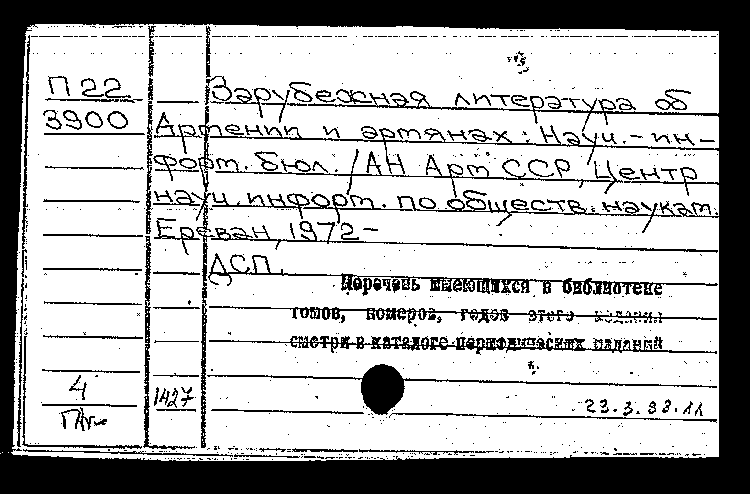 П22
3900
Зарубежная литература об
Армении и армянах: Науч.-ин-
форм. бюл. /АН Арм ССР, Центр
науч. информ. по обществ. наукам.
Ереван, 1972-
ДСП.
Перечень имеющихся в библиотеке
томов, номеров, годов этого издания
смотри в каталоге периодических изданий
4
1427
23.3.93.11